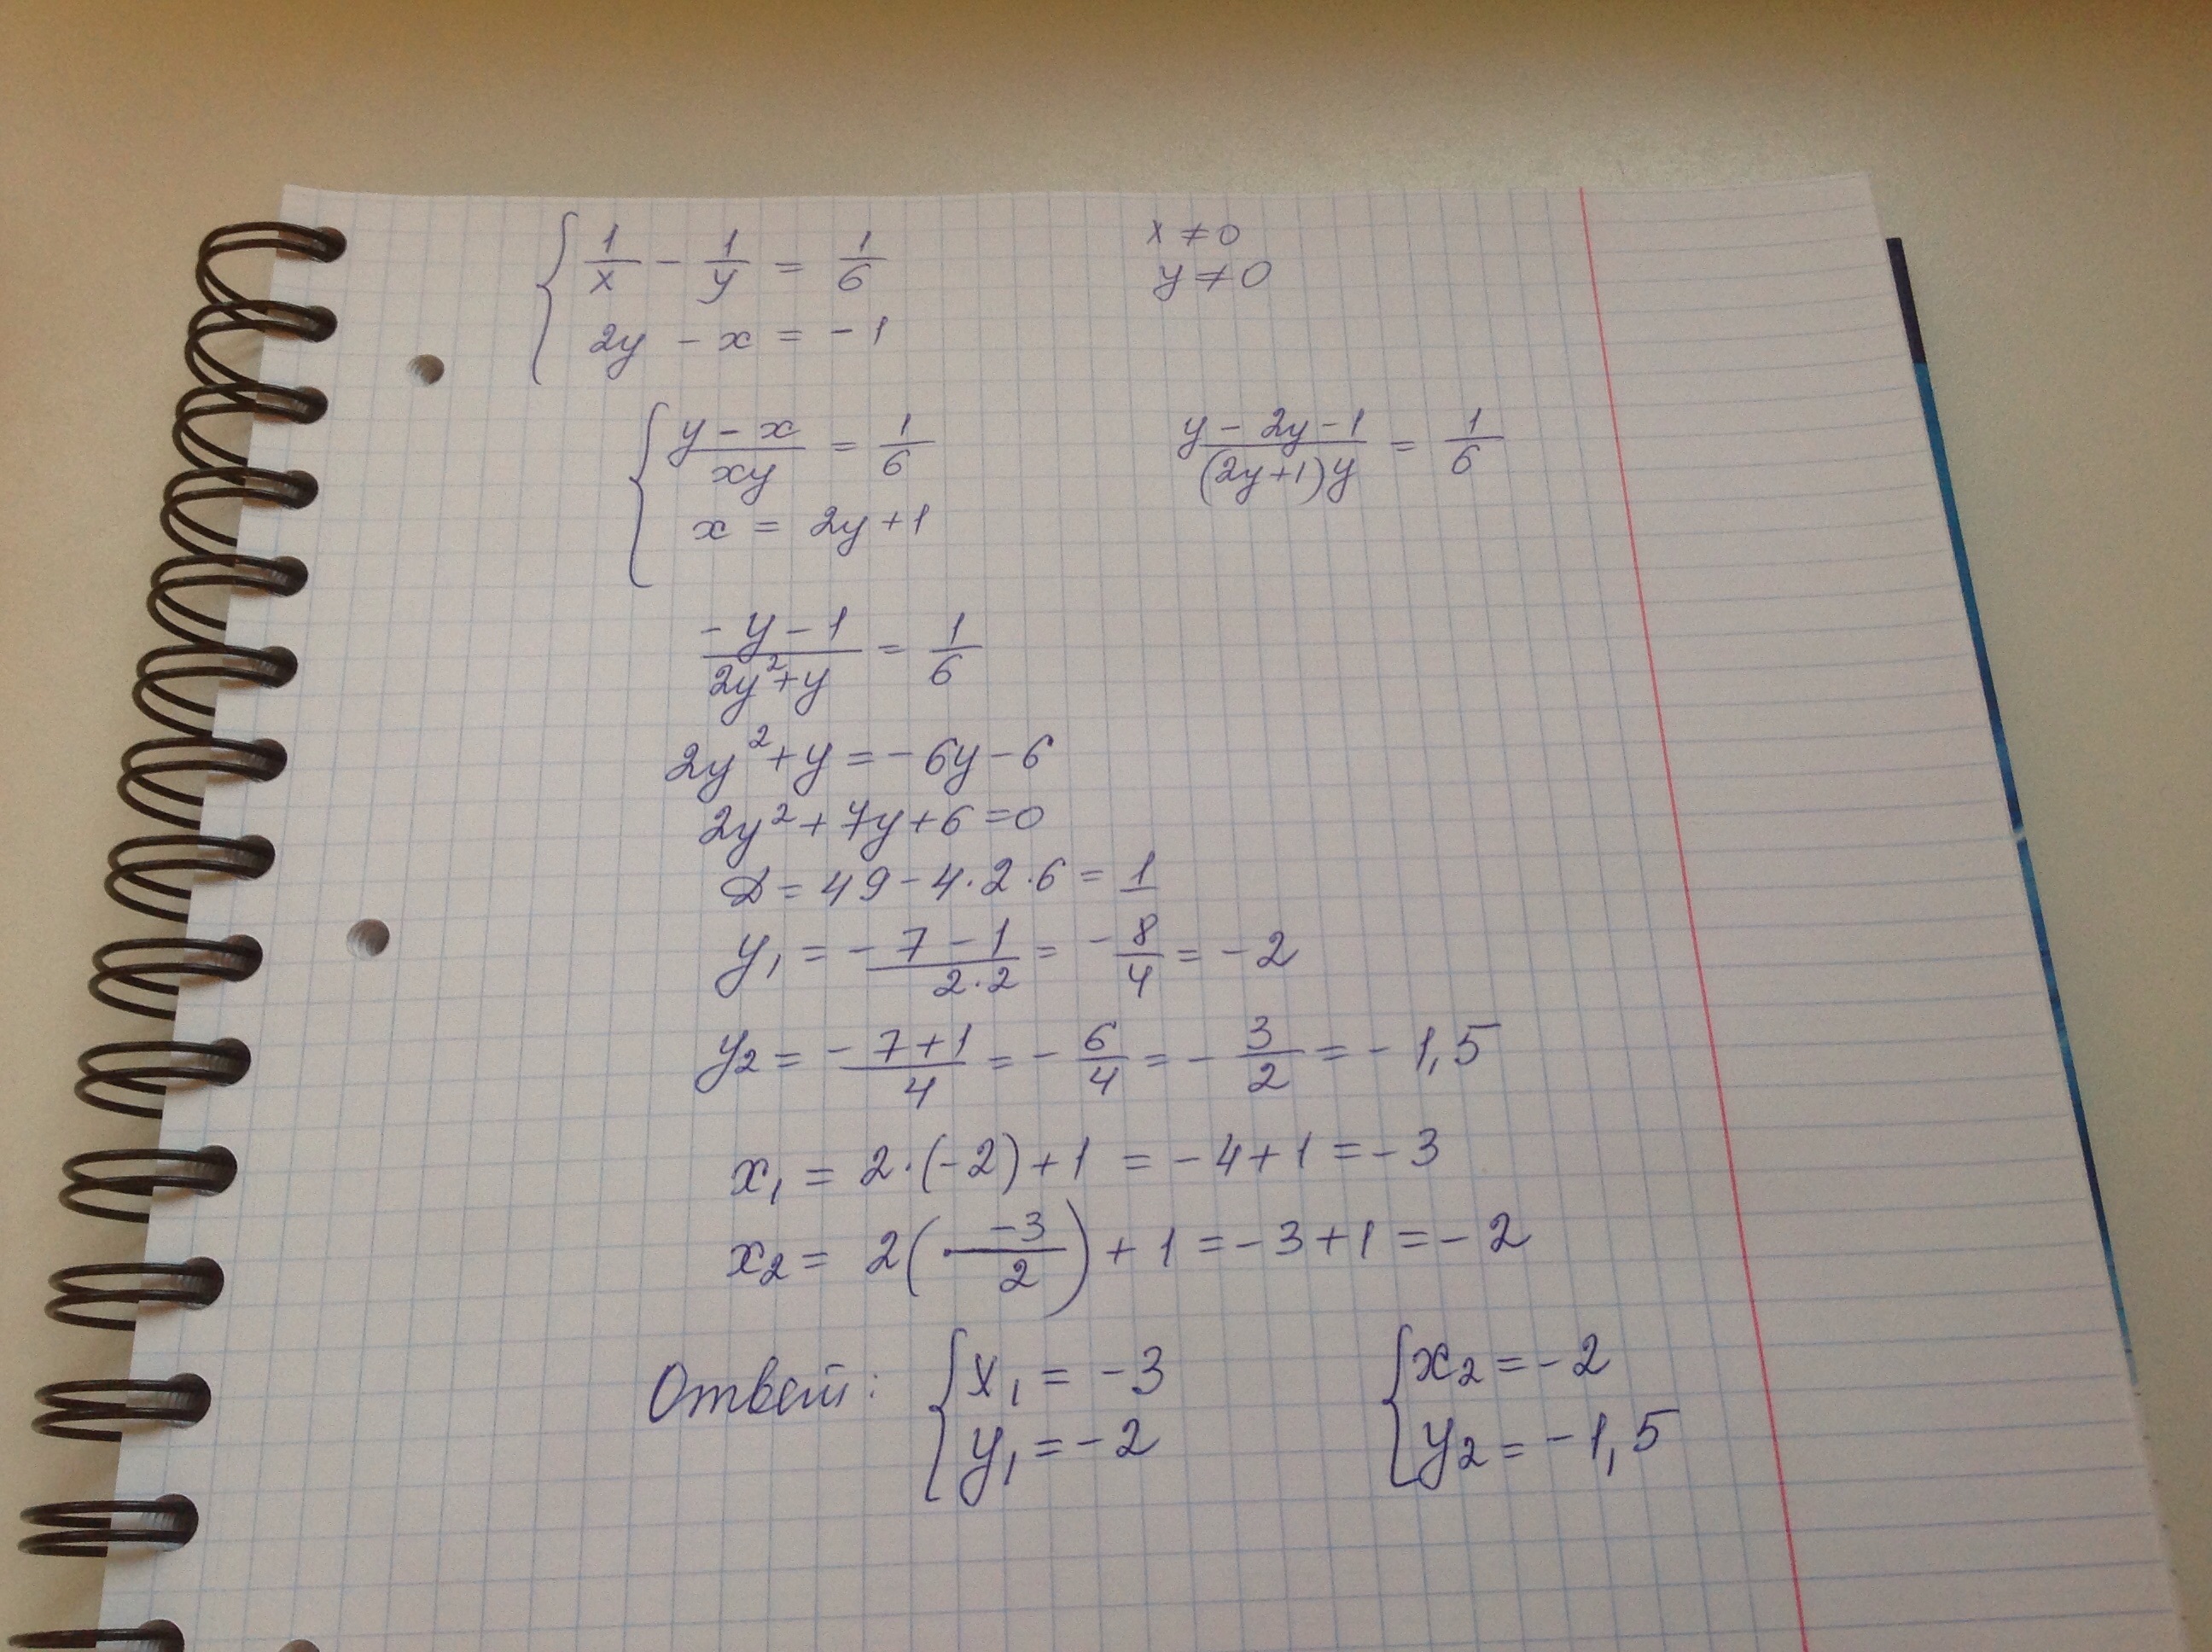 { 1/x - 1/y = 1/6
x ≠ 0
y ≠ 0
2y - x = -1
{ (y - x)/(xy) = 1/6
(y - 2y - 1)/((2y+1)y) = 1/6
x = 2y + 1
(-y - 1)/(2y² + y) = 1/6
2y² + y = -6y - 6
2y² + 7y + 6 = 0
D = 49 - 4·2·6 = 1
y₁ = (-7 - 1)/(2·2) = -8/4 = -2
y₂ = (-7 + 1)/4 = -6/4 = -3/2 = -1,5
x₁ = 2·(-2) + 1 = -4 + 1 = -3
x₂ = 2(-3/2) + 1 = -3 + 1 = -2
Ответ: { x₁ = -3 { x₂ = -2
y₁ = -2 y₂ = -1,5